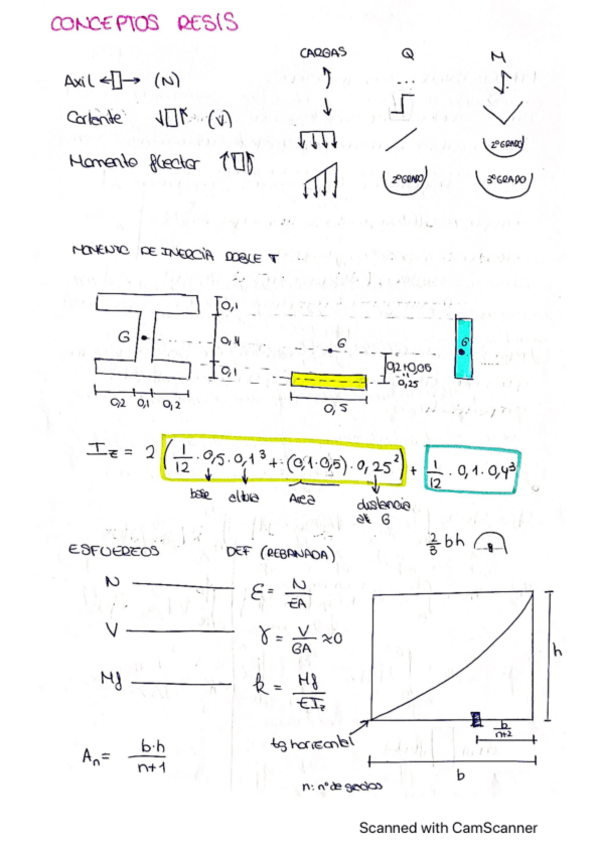 CONCEPTOS RESIS
CARGAS Q M
Axil (N)
Cortante (V)
Momento flector
2º GRADO
2º GRADO 3º GRADO
MOMENTO DE INERCIA DOBLE T
0,1
G 0,4 G G
0,1 0,2+0,05
0,25
0,2 0,1 0,2 0,5
Iz = 2 (1/12 · 0,5 · 0,1³ + (0,1·0,5) · 0,25²) + 1/12 · 0,1 · 0,4³
base altura Area distancia
al G
2/3 bh
ESFUERZOS DEF (REBANADA)
N ε = N/EA
V γ = V/GA ≈0
h
Mf k = Mf/EIz
b/n+2
tg horizontal
An = b·h/n+1
b
n: nº de grados
Scanned with CamScanner